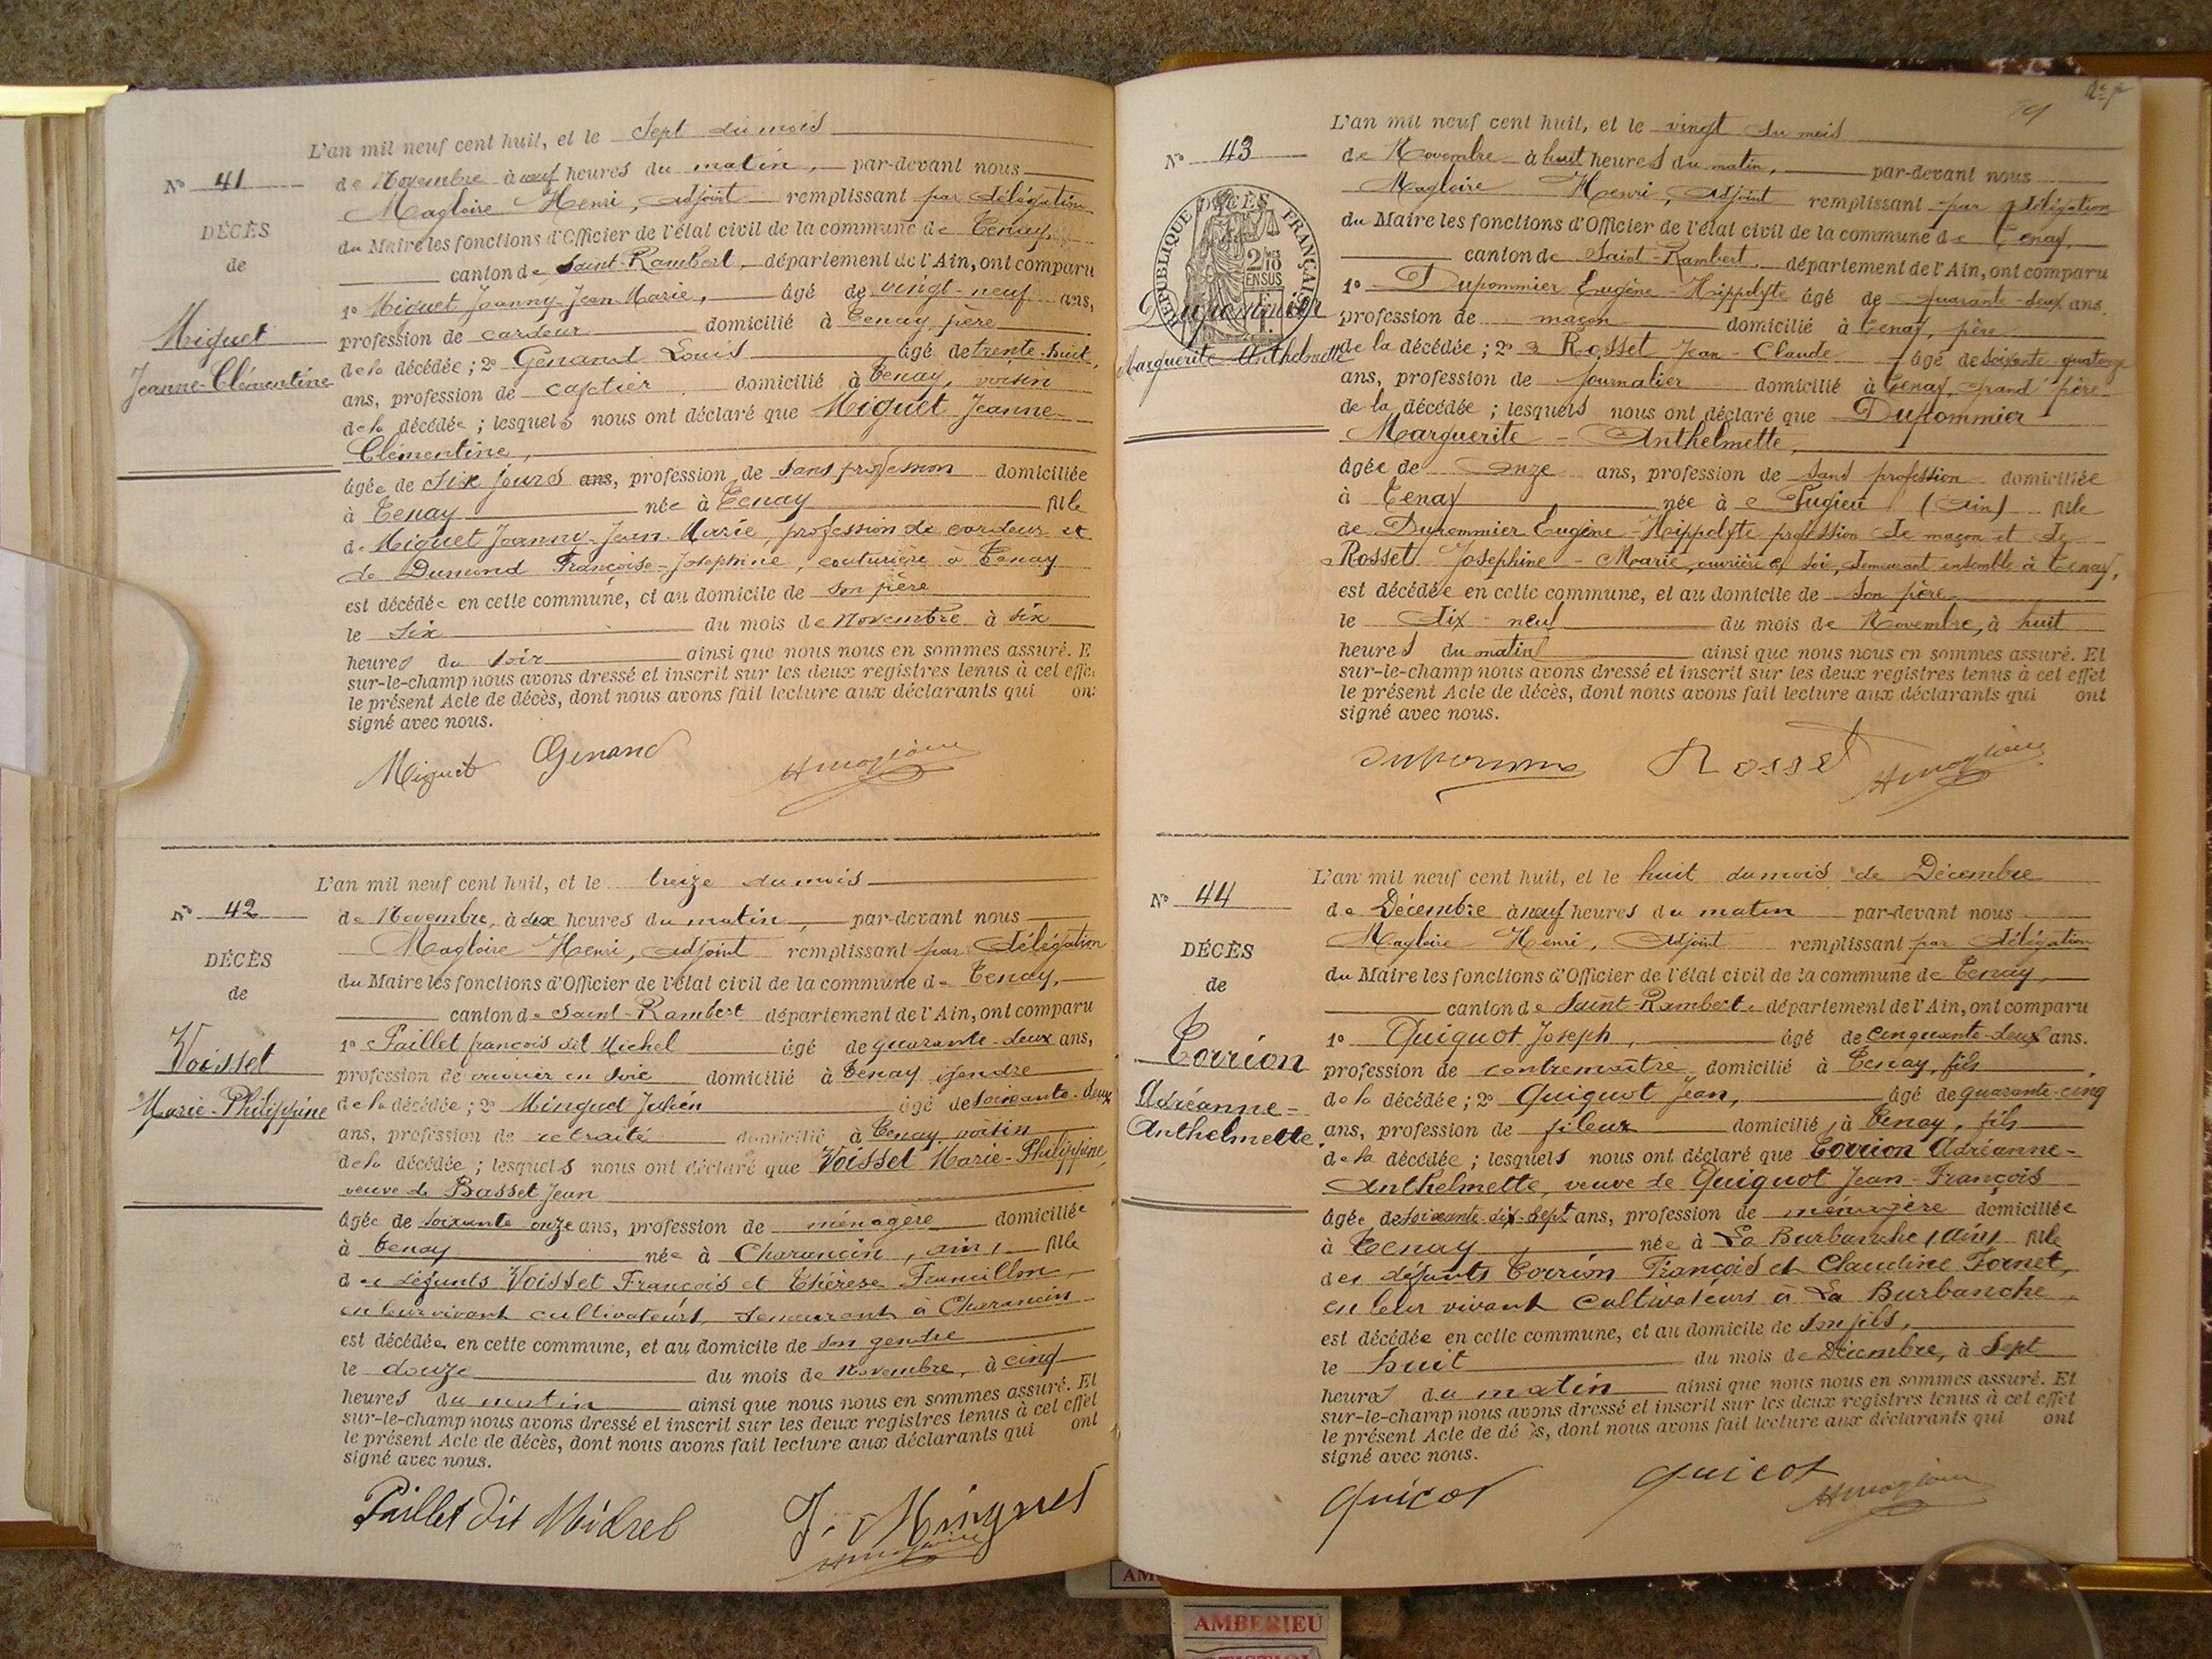 L'an mil neuf cent huit, et le Sept du mois
N° 41
de Novembre à neuf heures du matin, par-devant nous
Magloire Henri, adjoint remplissant par délégation
DÉCÈS
de
du Maire les fonctions d'Officier de l'état civil de la commune de Tenay,
canton de Saint-Rambert, département de l'Ain, ont comparu
1° Miguet Joanny-Jean-Marie, âgé de vingt-neuf ans,
Miguet
Jeanne-Clémentine
profession de cardeur domicilié à Tenay, père
de la décédée ; 2° Génand Louis âgé de trente-huit
ans, profession de domicilié à Tenay, voisin
de la décédée ; lesquels nous ont déclaré que Miguet Jeanne-
Clémentine,
âgée de six jours ans, profession de sans profession domiciliée
à Tenay née à Tenay fille
de Miguet Joanny-Jean-Marie, profession de cardeur et
de Dumond Françoise-Joséphine, couturière à Tenay
est décédée en cette commune, et au domicile de son père
le six du mois de Novembre à six
heures du soir ainsi que nous nous en sommes assuré. E
sur-le-champ nous avons dressé et inscrit sur les deux registres tenus à cet effe
le présent Acte de décès, dont nous avons fait lecture aux déclarants qui on
signé avec nous.
Miguet Génand HMagloire
L'an mil neuf cent huit, et le treize du mois
N° 42
de Novembre, à dix heures du matin, par-devant nous
Magloire Henri, adjoint remplissant par délégation
DÉCÈS
de
du Maire les fonctions d'Officier de l'état civil de la commune de Tenay,
canton de Saint-Rambert département de l'Ain, ont comparu
1° Paillet françois dit Michel âgé de quarante-deux ans,
Voisset
Marie-Philippine
profession de ouvrier en soie domicilié à Tenay gendre
de la décédée ; 2° Minguet Julien âgé de soixante-deux
ans, profession de retraité domicilié à Tenay voisin
de la décédée ; lesquels nous ont déclaré que Voisset Marie-Philippine,
veuve de Basset Jean
âgée de soixante onze ans, profession de ménagère domiciliée
à Tenay née à Charancin, ain, fille
des défunts Voisset François et Thérèse Francillon,
en leur vivant cultivateurs, demeurant à Charancin
est décédée en cette commune, et au domicile de son gendre
le douze du mois de Novembre, à cinq
heures du matin ainsi que nous nous en sommes assuré. Et
sur-le-champ nous avons dressé et inscrit sur les deux registres tenus à cet effet
le présent Acte de décès, dont nous avons fait lecture aux déclarants qui ont
signé avec nous.
Paillet dit Michel J. Minguet
HMagloire
L'an mil neuf cent huit, et le vingt du mois
N° 43
de Novembre à huit heures du matin, par-devant nous
Magloire Henri, adjoint remplissant par délégation
RÉPUBLIQUE FRANÇAISE
DÉCÈS
2/10 EN SUS
du Maire les fonctions d'Officier de l'état civil de la commune de Tenay,
canton de Saint-Rambert, département de l'Ain, ont comparu
1° Dupommier Eugène-Hippolyte âgé de quarante-deux ans.
Dupommier
Marguerite-Anthelmette
profession de maçon domicilié à Tenay, père
de la décédée ; 2° Rosset Jean-Claude âgé de soixante-quatorze
ans, profession de journalier domicilié à Tenay, grand'père
de la décédée ; lesquels nous ont déclaré que Dupommier
Marguerite-Anthelmette,
âgée de onze ans, profession de sans profession domiciliée
à Tenay née à Pugieu (Ain) fille
de Dupommier Eugène-Hippolyte profession de maçon et de
Rosset Joséphine-Marie, ouvrière en soie, demeurant ensemble à Tenay,
est décédée en cette commune, et au domicile de son père
le dix-neuf du mois de Novembre, à huit
heures du matin ainsi que nous nous en sommes assuré. Et
sur-le-champ nous avons dressé et inscrit sur les deux registres tenus à cet effet
le présent Acte de décès, dont nous avons fait lecture aux déclarants qui ont
signé avec nous.
Rosset HMagloire
L'an mil neuf cent huit, et le huit du mois de Décembre
N° 44
de Décembre à neuf heures du matin par-devant nous
Magloire Henri, adjoint remplissant par délégation
DÉCÈS
de
du Maire les fonctions d'Officier de l'état civil de la commune de Tenay,
canton de Saint-Rambert, département de l'Ain, ont comparu
1° Quiquot Joseph, âgé de cinquante-deux ans.
Torrion
Adréanne-
Anthelmette
profession de contremaître domicilié à Tenay, fils
de la décédée ; 2° Quiquot Jean, âgé de quarante-cinq
ans, profession de fileur domicilié à Tenay, fils
de la décédée ; lesquels nous ont déclaré que Torrion Adréanne-
Anthelmette, veuve de Quiquot Jean-François
âgée de soixante-dix-sept ans, profession de ménagère domiciliée
à Tenay née à La Burbanche (Ain) fille
des défunts Torrion François et Claudine Fornet,
en leur vivant cultivateurs à La Burbanche
est décédée en cette commune, et au domicile de son fils,
le huit du mois de Décembre, à sept
heures du matin ainsi que nous nous en sommes assuré. Et
sur-le-champ nous avons dressé et inscrit sur les deux registres tenus à cet effet
le présent Acte de dé s, dont nous avons fait lecture aux déclarants qui ont
signé avec nous.
quicot quicot HMagloire
AMBERIEU